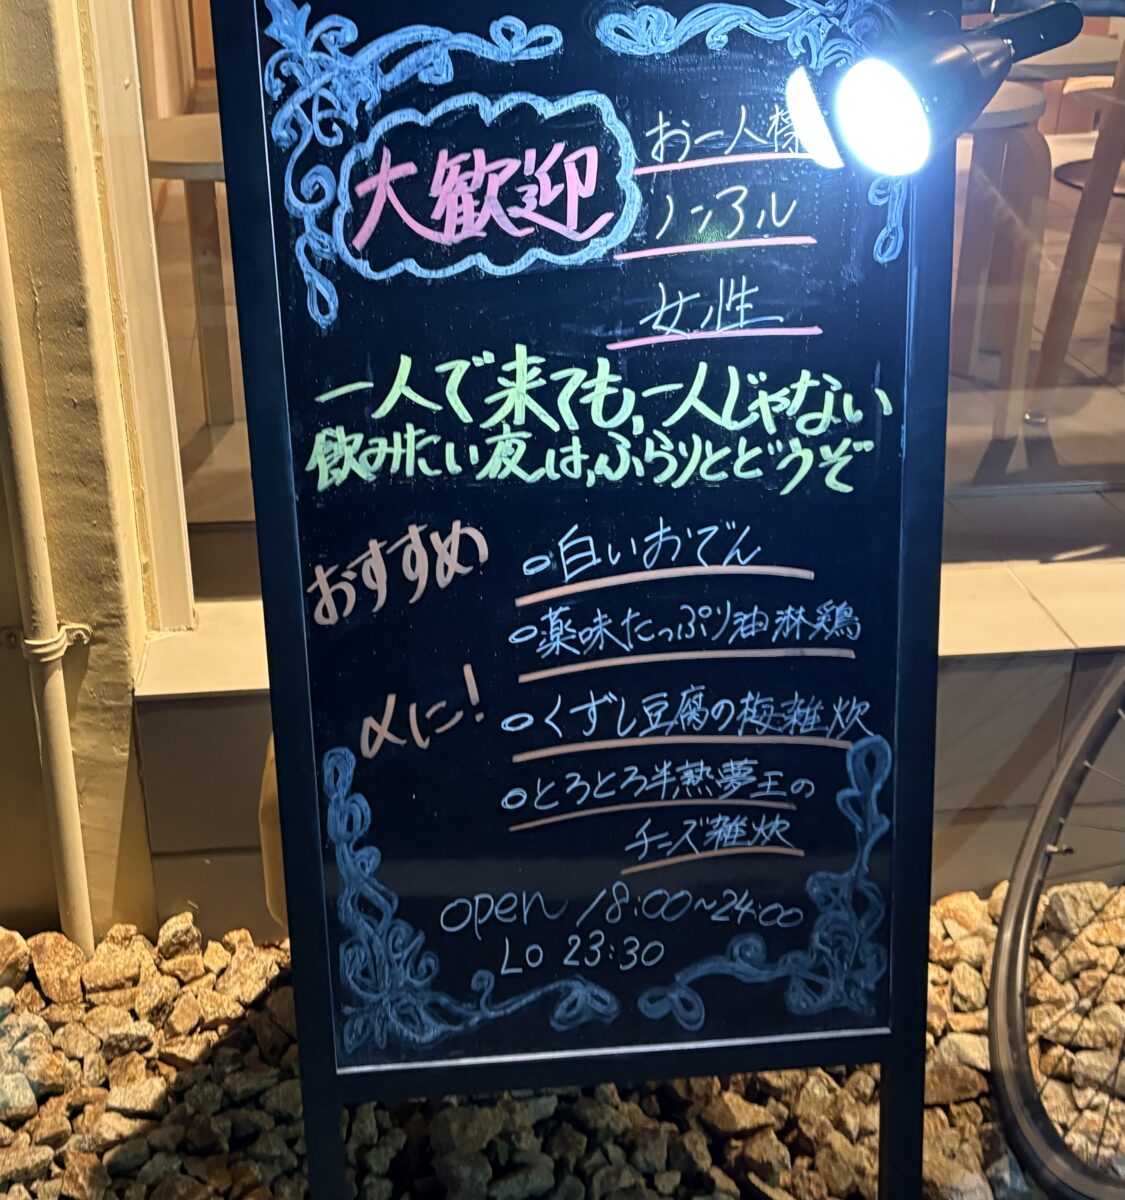 大歓迎
お一人様
ノンアル
女性
一人で来ても,一人じゃない
飲みたい夜は,ふらりとどうぞ
おすすめ
○白いおでん
○薬味たっぷり油淋鶏
〆に!
○くずし豆腐の梅雑炊
○とろとろ半熟夢王の
チーズ雑炊
open 18:00~24:00
Lo 23:30